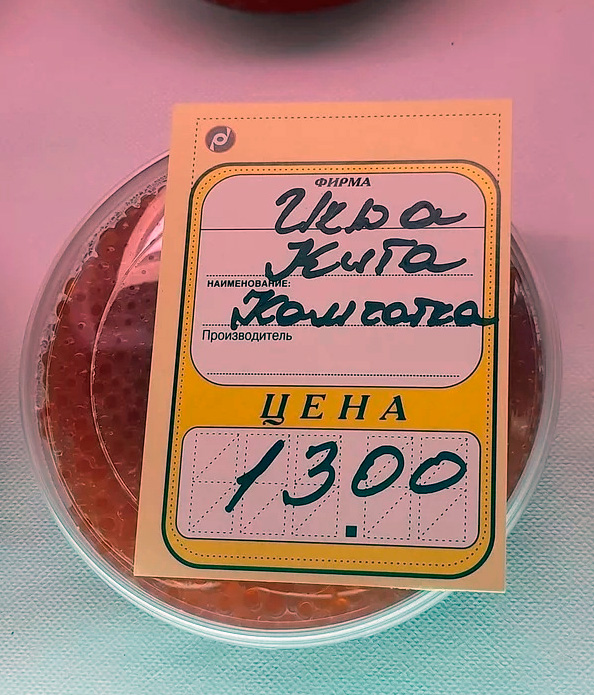 ФИРМА
Икра
Кита
НАИМЕНОВАНИЕ:
Камчатка
Производитель
ЦЕНА
1300